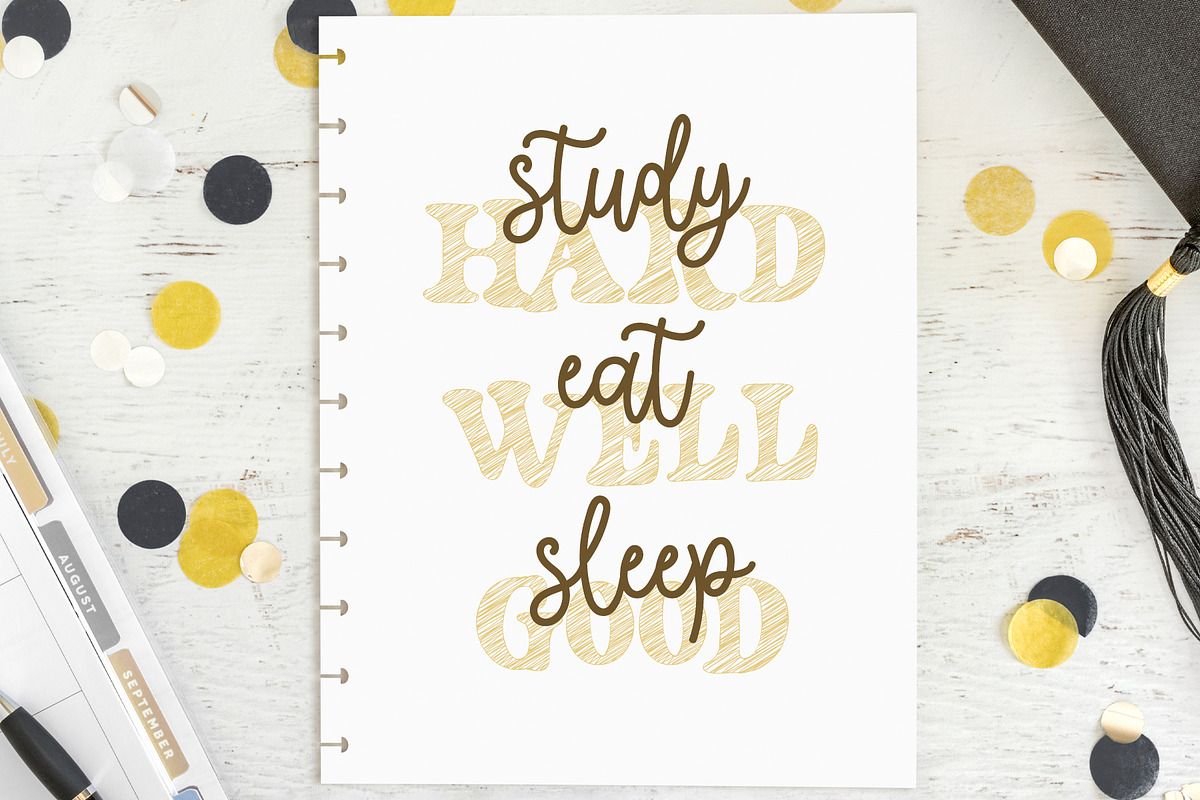 study
HARD
eat
WELL
sleep
GOOD
AUGUST
SEPTEMBER